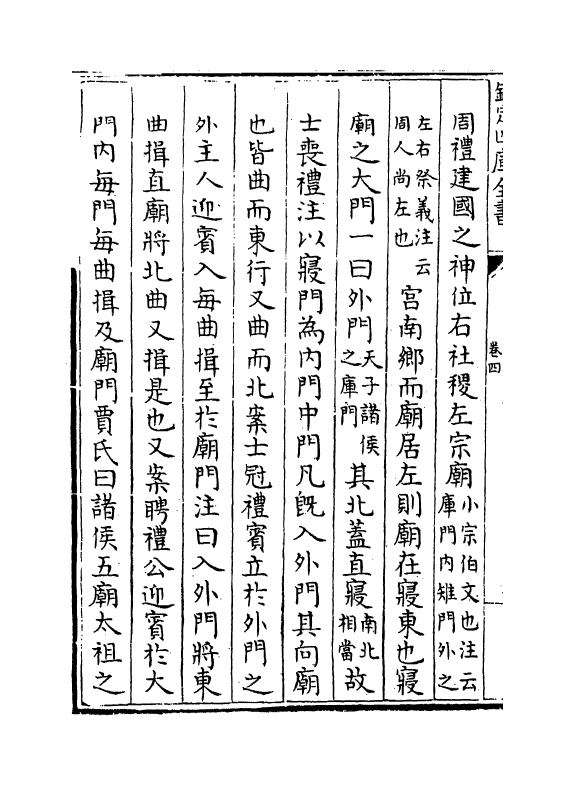 欽定四庫全書
卷四
周禮建國之神位右社稷左宗廟小宗伯文也注云庫門内雉門外之
左右祭義注云周人尚左也宫南鄉而廟居左則廟在寢東也寢
廟之大門一曰外門天子諸侯之庫門其北蓋直寢南北相當故
士喪禮注以寢門為内門中門凡既入外門其向廟
也皆曲而東行又曲而北案士冠禮賓立於外門之
外主人迎賓入每曲揖至於廟門注曰入外門將東
曲揖直廟將北曲又揖是也又案聘禮公迎賓於大
門内每門每曲揖及廟門賈氏曰諸侯五廟太祖之